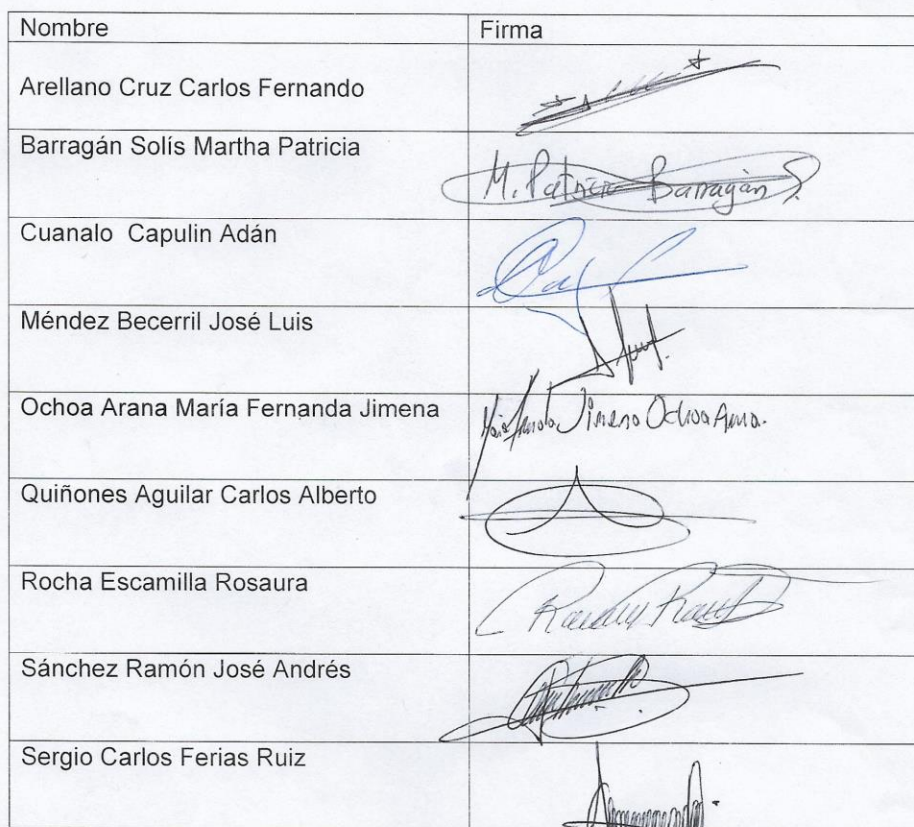 Nombre Firma
Arellano Cruz Carlos Fernando
Barragán Solís Martha Patricia M. Patricia Barragán S.
Cuanalo Capulin Adán
Méndez Becerril José Luis
Ochoa Arana María Fernanda Jimena María Fernanda Jimena Ochoa Arana.
Quiñones Aguilar Carlos Alberto
Rocha Escamilla Rosaura
Sánchez Ramón José Andrés
Sergio Carlos Ferias Ruiz